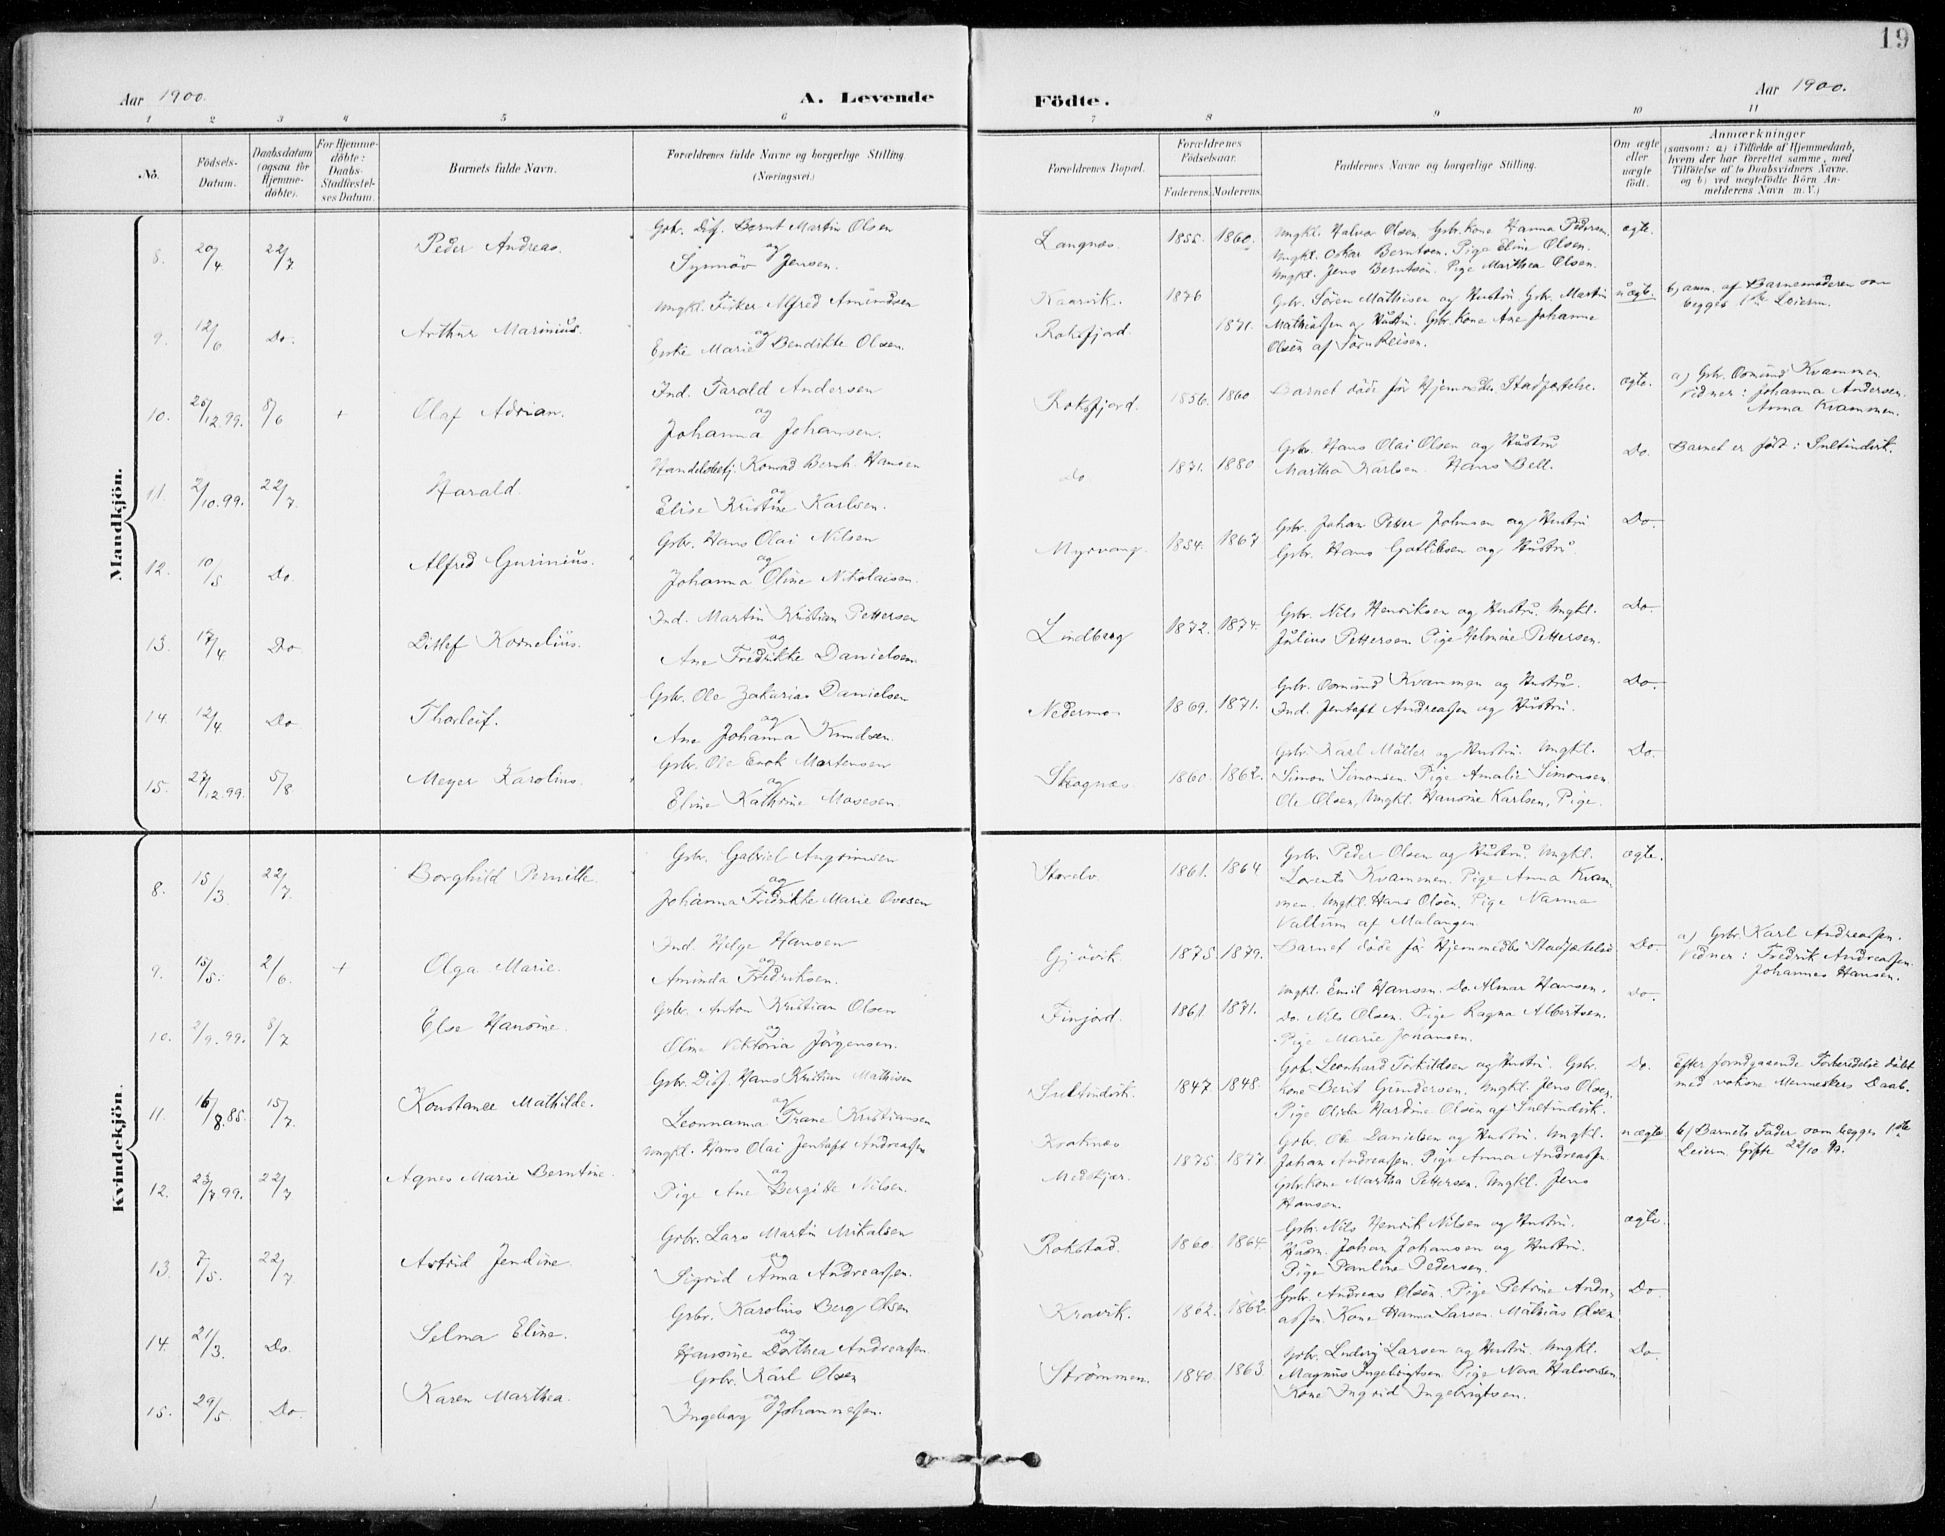 19
Aar 1900.
A. Levende
Födte.
Aar 1900.
1 2 3 4 5 6 7 8 9 10 11
No.
Födsels-Datum.
Daabsdatum (ogsaa for Hjemmedöbte).
For Hjemmedöbte: Daabs-Stadfæstelses Datum.
Barnets fulde Navn.
Forældrenes fulde Navne og borgerlige Stilling. (Næringsvei.)
Forældrenes Bopæl.
Forældrenes Födselsaar.
Faderens. Moderens.
Faddernes Navne og borgerlige Stilling.
Om ægte eller uægte födt.
Anmærkninger
(saasom: a.) i Tilfælde af Hjemmedaab, hvem der har forrettet samme, med Tilföielse af to Daabsvidners Navne. og b.) ved uægtefödte Börn Anmelderens Navn m. V.)
Mandkjön.
8. 20/4 22/7 Peder Andreas.
Gbr. Disp. Bernt Martin Olsen
og
Synnöv Jensen.
Langnæs. 1855. 1860.
Ungkl. Halvor Olsen. Gbr.kone Hanna Pedersen.
Ungkl. Oskar Berntsen. Pige Eline Olsen.
Ungkl. Jens Berntsen. Pige Marthea Olsen.
ægte.
9. 12/6 Do. Arthur Marinius.
Ungkl. Fisker Alfred Amundsen
og
Enke Marie Bendikte Olsen.
Kaarvik. 1876
Roksfjord. 1871.
Gbr. Sören Mathisen og Hustru Gbr. Martin
Mathiassen og Hustru. Gbr. Kone Ane Johanne
Olsen af Sörreisen.
uægte.
b) anm. af Barnemoderen som
begges 1ste Leierm.
10. 25/12.99. 8/6 + Olaf Adrian.
Ind. Tarald Andersen
og
Johanna Johansen.
Roksfjord. 1856. 1860
Barnet döde för Hjemmedb. Stadfæstelse.
ægte.
a) Gbr. Osmund Kvammen.
Vidner: Johanna Andersen.
Anna Kvammen.
11. 2/10.99. 22/7. Harald.
Handelsbetj. Konrad Bernh. Hansen
og
Elise Kristine Karlsen.
do 1871. 1880
Gbr. Hans Olai Olsen og Hustru
Martha Karlsen. Hans Bell.
Do.
Barnet er född i Sultindvik.
12. 10/5 Do. Alfred Gurinius.
Gbr. Hans Olai Nilsen
og
Johanna Oline Nikolaisen.
Myrvang. 1854. 1867
Gbr. Johan Petter Johnsen og Hustru
Gbr. Hans Gotliksen og Hustru.
Do.
13. 17/4 Do Ditlef Kornelius.
Ind. Martin Kristian Pettersen
og
Ane Fredrikke Danielsen.
Lindberg 1872. 1874.
Gbr. Nils Henriksen og Hustru. Ungkl.
Julius Pettersen. Pige Helmine Pettersen.
Do.
14. 12/4 Do Thorleif.
Gbr. Ole Zakarias Danielsen
og
Ane Johanna Knudsen.
Nedermo 1869. 1871.
Gbr. Osmund Kvammen og Hustru.
Ind. Jentoft Andreassen og Hustru.
Do.
15. 27/12.99. 5/8 Meyer Karolius.
Gbr. Ole Enok Mortensen
og
Eline Kathrine Mosesen.
Skognæs. 1860. 1862.
Gbr. Karl Müller og Hustru. Ungkl.
Simon Simonsen. Pige Amalie Simonsen
Ole Olsen, Ungkl. Hansine Karlsen, Pige.
Do.
Kvindekjön.
8. 15/3 22/7. Borghild Pernille.
Gbr. Gabriel Angsimsen
og
Johanna Fredrikke Marie Ovesen
Storelv. 1861. 1864
Gbr. Peder Olsen og Hustru. Ungkl.
Lorents Kvammen. Pige Anna Kvammen.
Ungkl. Hans Olsen. Pige Nanna
Vallum af Malangen
ægte.
9. 15/5. 2/6 + Olga Marie.
Ind. Helge Hansen
og
Aminda Fredriksen.
Gjövik. 1875. 1879.
Barnet döde för Hjemmedbs Stadfæstelse
Do.
a) Gbr. Karl Andreassen.
Vidner: Fredrik Andreassen.
Johannes Hansen.
10. 2/9.99. 8/7 Else Hansine.
Gbr. Anton Kristian Olsen
og
Oline Viktoria Jörgensen.
Finjord. 1861. 1871.
Ungkl. Emil Hansen. Do. Almar Hansen.
Do. Nils Olsen. Pige Ragna Albertsen.
Pige Marie Johansen.
Do.
11. 16/8.85. 15/7. Konstance Mathilde.
Gbr. Disp. Hans Kristian Mathisen
og
Leonnanna Trane Kristiansen
Sultindvik. 1847. 1848.
Gbr. Leonhard Torkildsen og Hustru. Gbr.
kone Berit Gundersen. Ungkl. Jens Olsen.
Pige Olida Hardine Olsen af Sultindvik.
Do.
Efter forudgaaende Forberedelse döbt
med voksne Menneskers Daab.
12. 23/7 99. 22/7 Agnes Marie Berntine.
Ungkl. Hans Olai Jentoft Andreassen
og
Pige Ane Bergitte Nilsen.
Kraknæs
Medskjær. 1875. 1877
Gbr. Ole Danielsen og Hustru. Ungkl.
Johan Andreassen. Pige Anna Andreassen
Gbr.kone Martha Pettersen. Ungkl. Jens
Hansen.
uægte
b) Barnets Fader som begges 1ste
Leierm. Gifte 22/10.99.
13. 7/5. 22/7 Astrid Jendine.
Gbr. Lars Martin Mikalsen
og
Sigrid Anna Andreassen.
Rokstad. 1860. 1864.
Gbr. Nils Henrik Nilsen og Hustru.
Husm. Johan Johansen og Hustru.
Pige Pauline Pedersen.
ægte.
14. 21/3. Do. Selma Eline.
Gbr. Karolius Berg Olsen
og
Hansine Dorthea Andreassen.
Kravik. 1862. 1862.
Gbr. Andreas Olsen. Pige Petrine Andreassen.
Kone Hanna Larsen. Mathias Olsen
Do
15. 29/5 Do. Karen Marthea.
Gbr. Karl Olsen
og
Ingeborg Johannessen.
Strömmen. 1840. 1863
Gbr. Ludvig Larsen og Hustru. Ungkl.
Magnus Ingebrigtsen. Pige Nora Halvorsen
Kone Ingrid Ingebrigtsen.
Do.